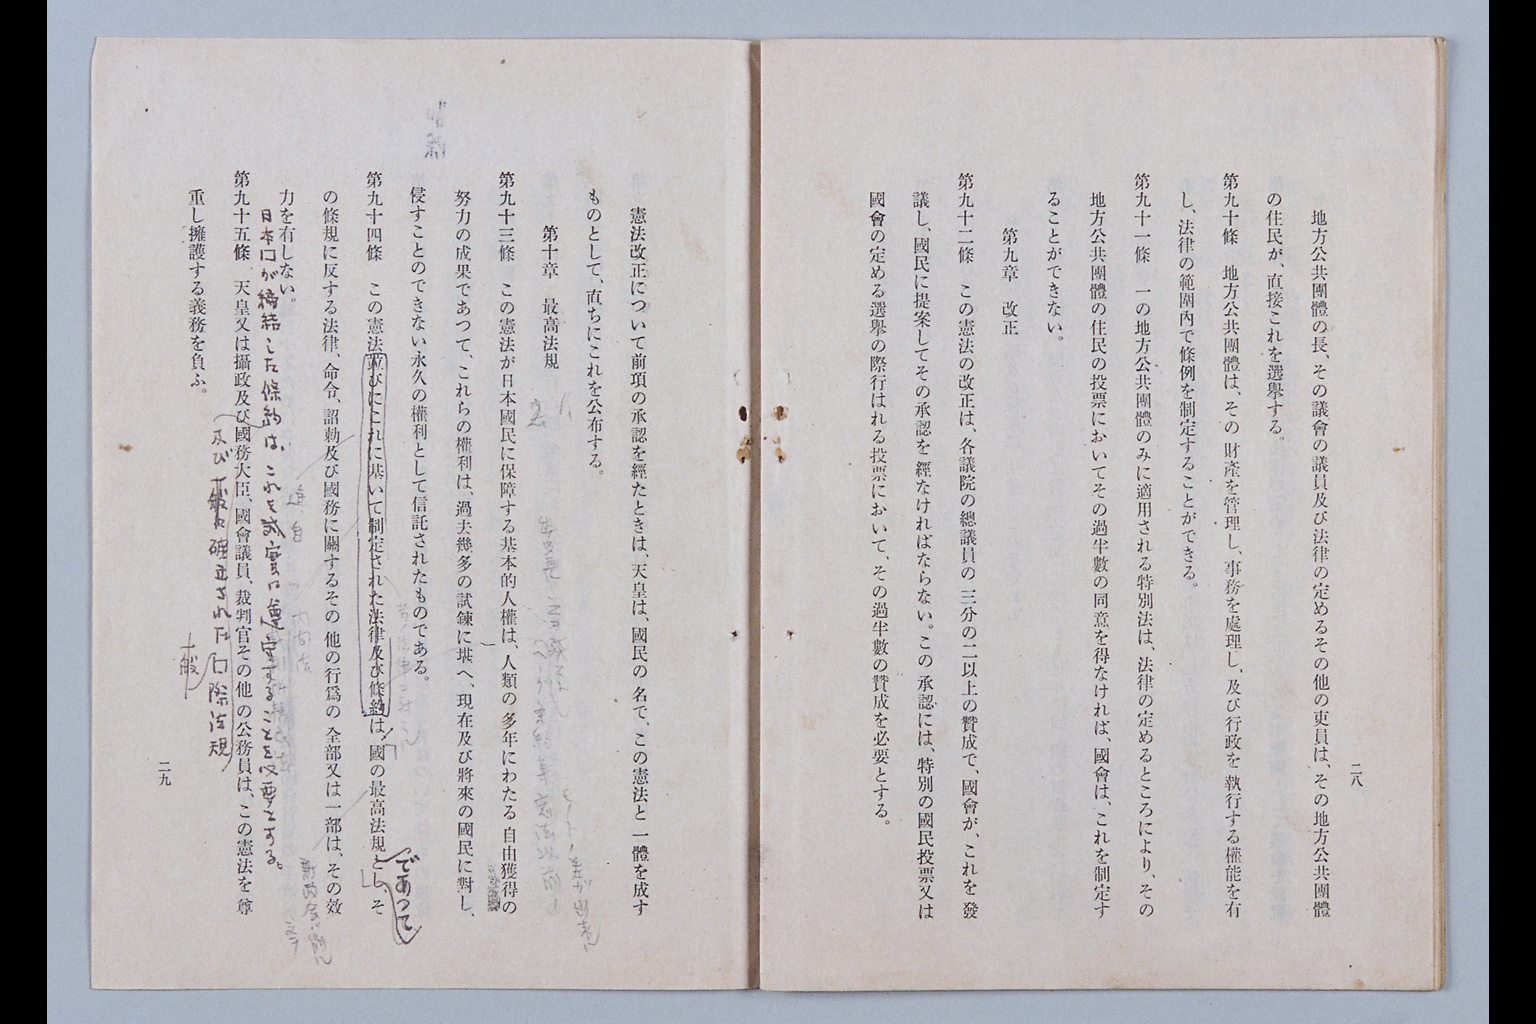 地方公共團體の長、その議會の議員及び法律の定めるその他の吏員は、その地方公共團體
の住民が、直接これを選擧する。
第九十條　地方公共團體は、その財產を管理し、事務を處理し、及び行政を執行する權能を有
し、法律の範圍內で條例を制定することができる。
第九十一條　一の地方公共團體のみに適用される特別法は、法律の定めるところにより、その
地方公共團體の住民の投票においてその過半數の同意を得なければ、國會は、これを制定す
ることができない。
第九章　改正
第九十二條　この憲法の改正は、各議院の總議員の三分の二以上の贊成で、國會が、これを發
議し、國民に提案してその承認を經なければならない。この承認には、特別の國民投票又は
國會の定める選擧の際行はれる投票において、その過半數の贊成を必要とする。
二八
憲法改正について前項の承認を經たときは、天皇は、國民の名で、この憲法と一體を成す
ものとして、直ちにこれを公布する。
第十章　最高法規
第九十三條　この憲法が日本國民に保障する基本的人權は、人類の多年にわたる自由獲得の
努力の成果であつて、これらの權利は、過去幾多の試鍊に堪へ、現在及び將來の國民に對し、
侵すことのできない永久の權利として信託されたものである。
第九十四條　この憲法並びにこれに基いて制定された法律及び條約は、國の最高法規とし、そ
であつて
の條規に反する法律、命令、詔勅及び國務に關するその他の行爲の全部又は一部は、その效
力を有しない。
日本口が締結した條約は、これを誠實に遵守することを必要とする。
及び一般に確立された口際法規
一般
第九十五條　天皇又は攝政及び國務大臣、國會議員、裁判官その他の公務員は、この憲法を尊
重し擁護する義務を負ふ。
二九